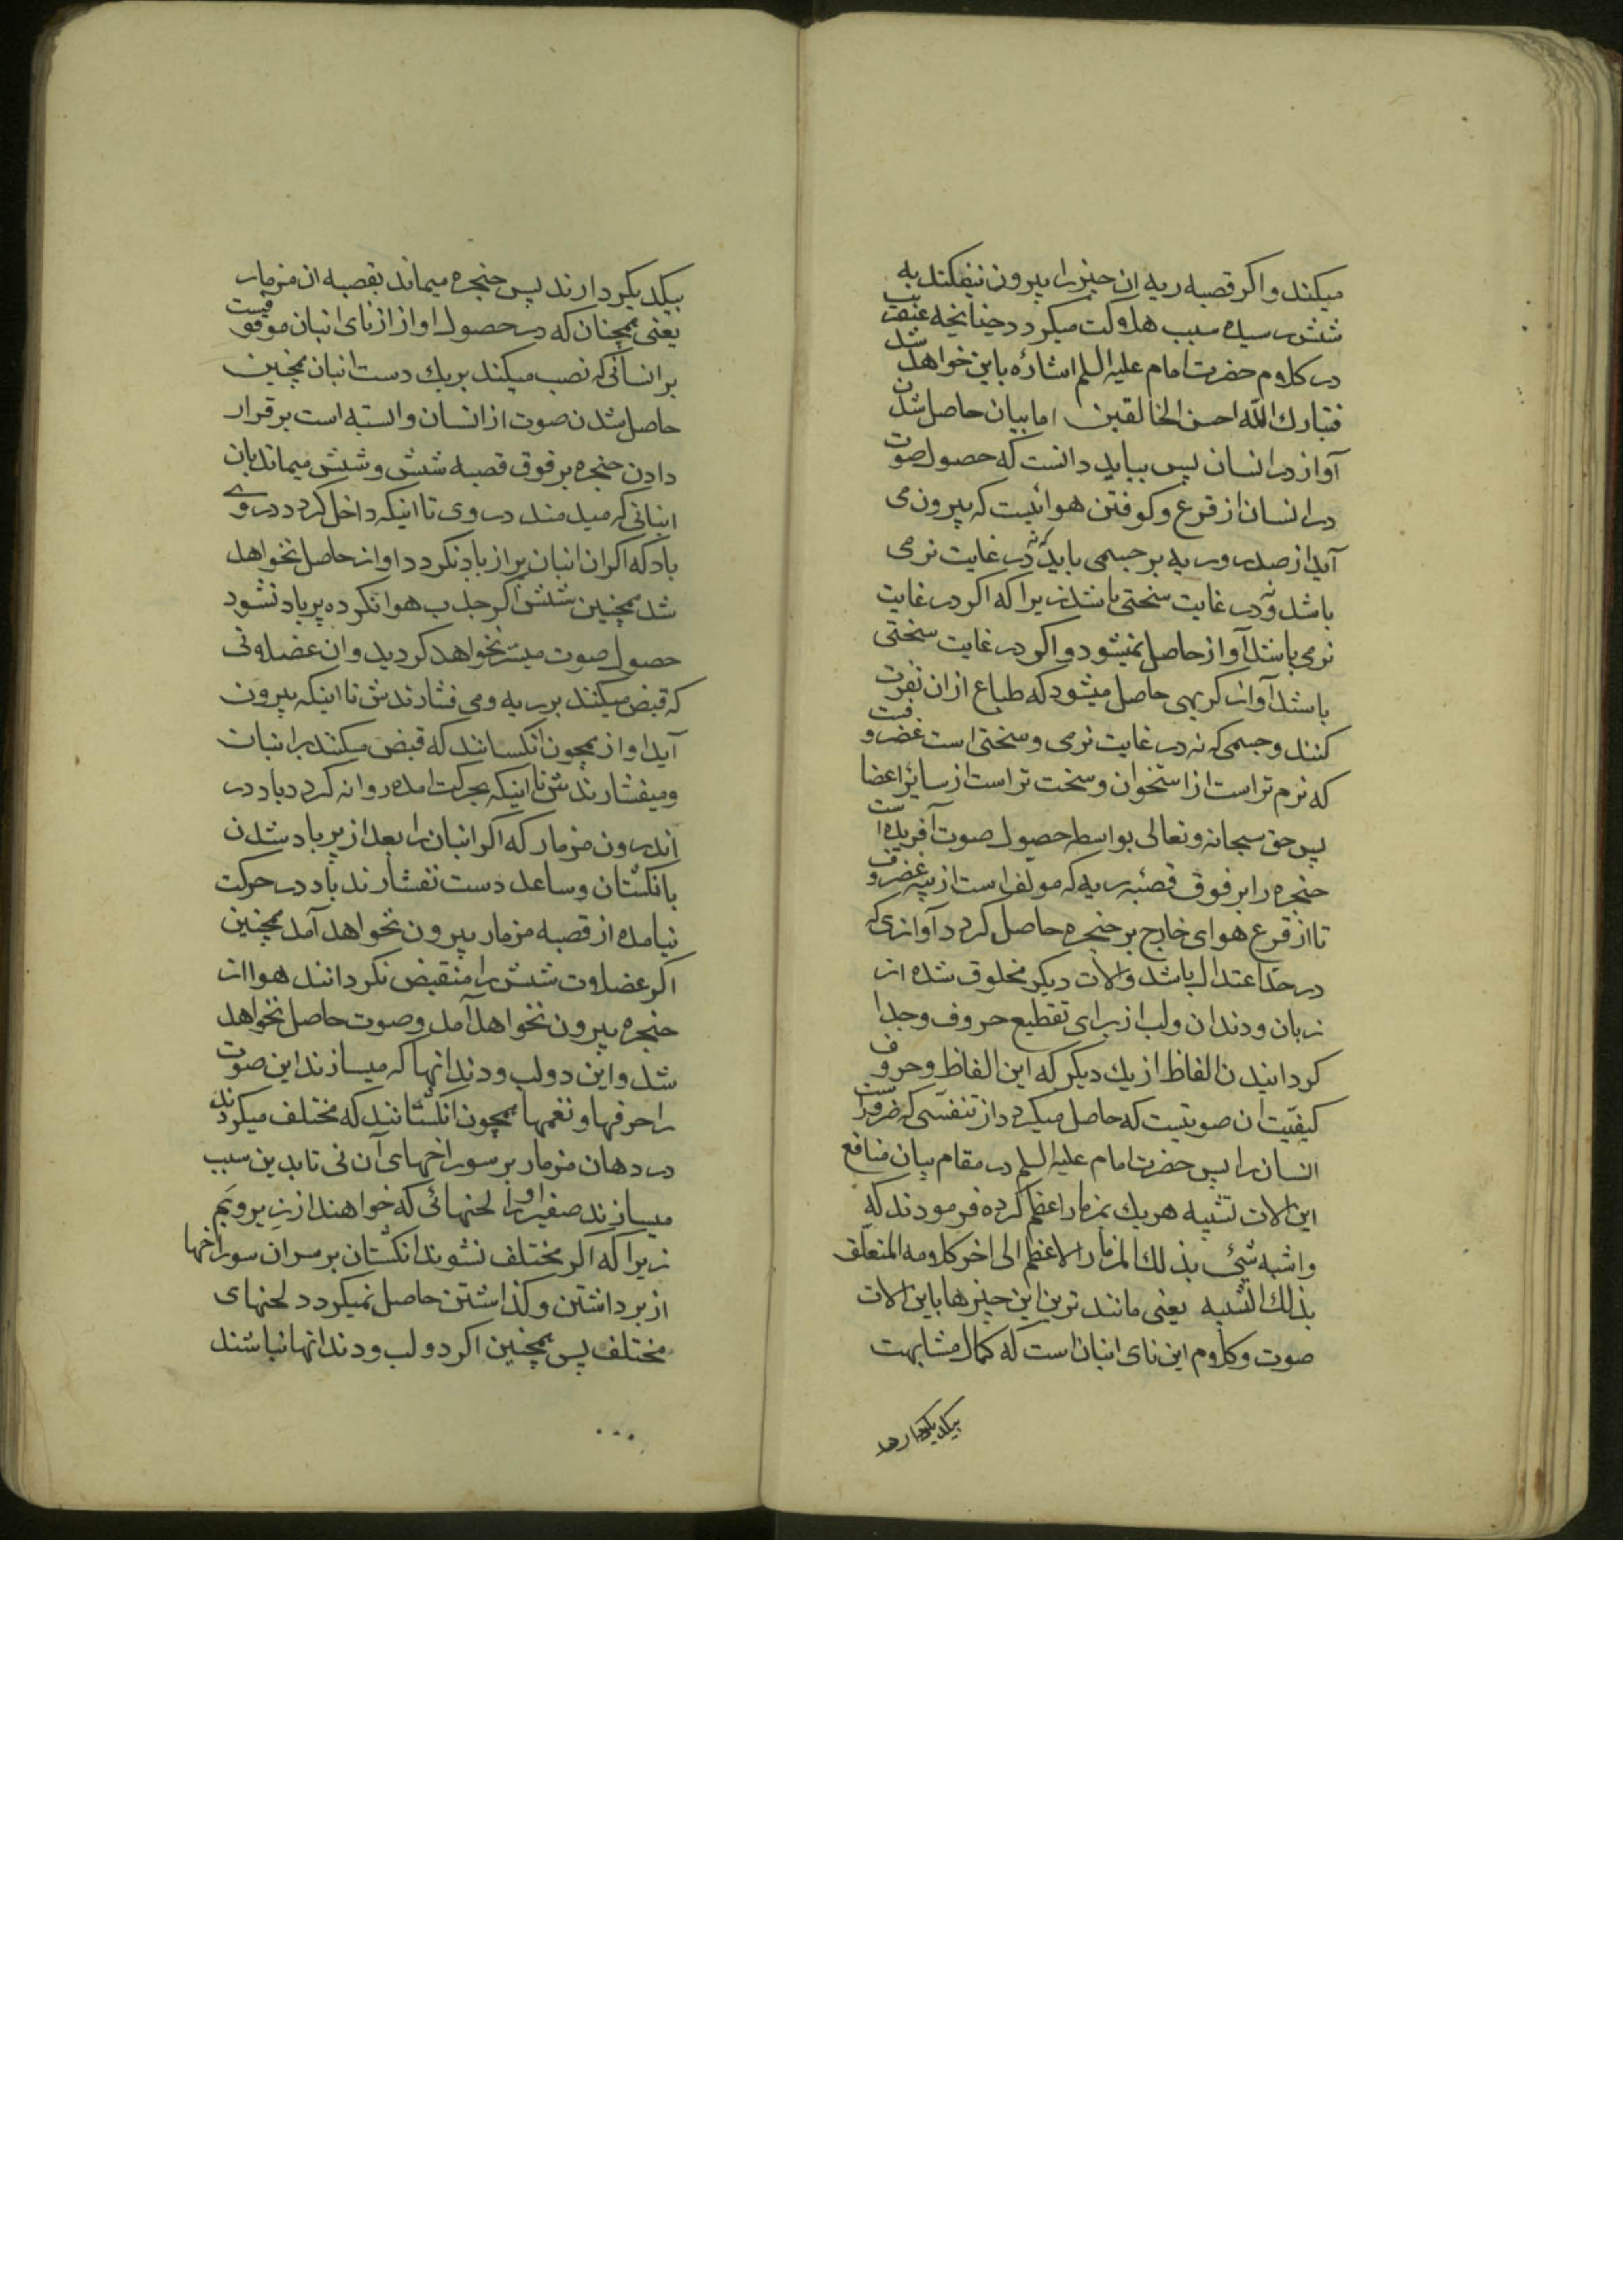 میکند و اکر قصبه ریه ان چیز را بیرون نیفکند به
شش رسیده سبب هلاکت میکردد چنانچه عنقریب
در کلام حضرت امام علیه السلم اشاره باین خواهد شد
فتبارك الله احسن الخالقین اما بیان حاصل شدن
آواز در انسان پس بباید دانست که حصول صوت
در انسان از قرع و کوفتن هوائیست که بیرون می
آید از صدر و ریه بر جسمی باید که نه در غایت نرمی
باشد و نه در غایت سختی باشد زیرا که اکر در غایت
نرمی باشد آواز حاصل نمیشود و اکر در غایت سختی
باشد آواز کریهی حاصل میشود که طباع ازان نفرت
کنند و جسمی که نه در غایت نرمی و سختی است غضروفست
که نرم تر است از استخوان و سخت تر است از سائر اعضا
پس حق سبحانه و تعالی بواسطه حصول صوت آفریده است
حنجره را بر فوق قصبه ریه که مولف است از سه غضروف
تا از قرع هوای خارج بر حنجره حاصل کردد آوازی که
در حد اعتدال باشد و الات دیکر مخلوق شده از
زبان و دندان و لب از برای تقطیع حروف و جدا
کردانیدن الفاظ از یك دیکر که این الفاظ و حروف
کیفیّت ان صوتیست که حاصل میکردد از تنفسی که ضرورست
انسان را پس حضرت امام علیه السلم در مقام بیان منافع
این الات تشبیه هر یك بمزمار اعظم کرده فرمودند که
واشبه شیٔ بذلك المزمار الاعظم الی اخر کلامه المتعلّق
بذلك التشبیه یعنی مانند ترین این چیزها باین الات
صوت و کلام این نای انبان است که کمال مشابهت
بیکدیکر دارند
بیکدیکر دارند پس حنجره میماند بقصبه ان مزمار
یعنی همچنان که در حصول اواز از نای انبان موقوفست
بر انسانی که نصب میکند بر یك دست انبان همچنین
حاصل شدن صوت از انسان وابسته است بر قرار
دادن حنجره بر فوق قصبه شش و شش میماند بان
انبانی که میدمند در وی تا اینکه داخل کردد در وی
باد که اکر ان انبان پر از باد نکردد اواز حاصل نخواهد
شد همچنین شش اکر جلب هوا نکرده پر باد نشود
حصول صوت میسّر نخواهد کردید و ان عضلاتی
که قبض میکنند بر ریه و می فشارندش تا اینکه بیرون
آید اواز همچون انکسانند که قبض میکنند بر انبان
و میفشارندش تا اینکه بحرکت امده روانه کردد باد در
اندرون مزمار که اکر انبان را بعد از پر باد شدن
بانکشتان و ساعد دست نفشارند باد در حرکت
نیامده از قصبه مزمار بیرون نخواهد آمد همچنین
اکر عضلات شش را منقبض نکردانند هوا از
حنجره بیرون نخواهد آمد و صوت حاصل نخواهد
شد و این دو لب و دندانها که میسازند این صوت
را حرفها و نغمها همچون انکشتانند که مختلف میکردند
در دهان مزمار بر سوراخهای آن نی تا بدین سبب
میسازند صفیر او را لحنهائی که خواهند از زیر و بَم
زیرا که اکر مختلف نشوند انکشتان بر سر ان سوراخها
از برداشتن و کذاشتن حاصل نمیکردد لحنهای
مختلف پس همچنین اکر دو لب و دندانها نباشند